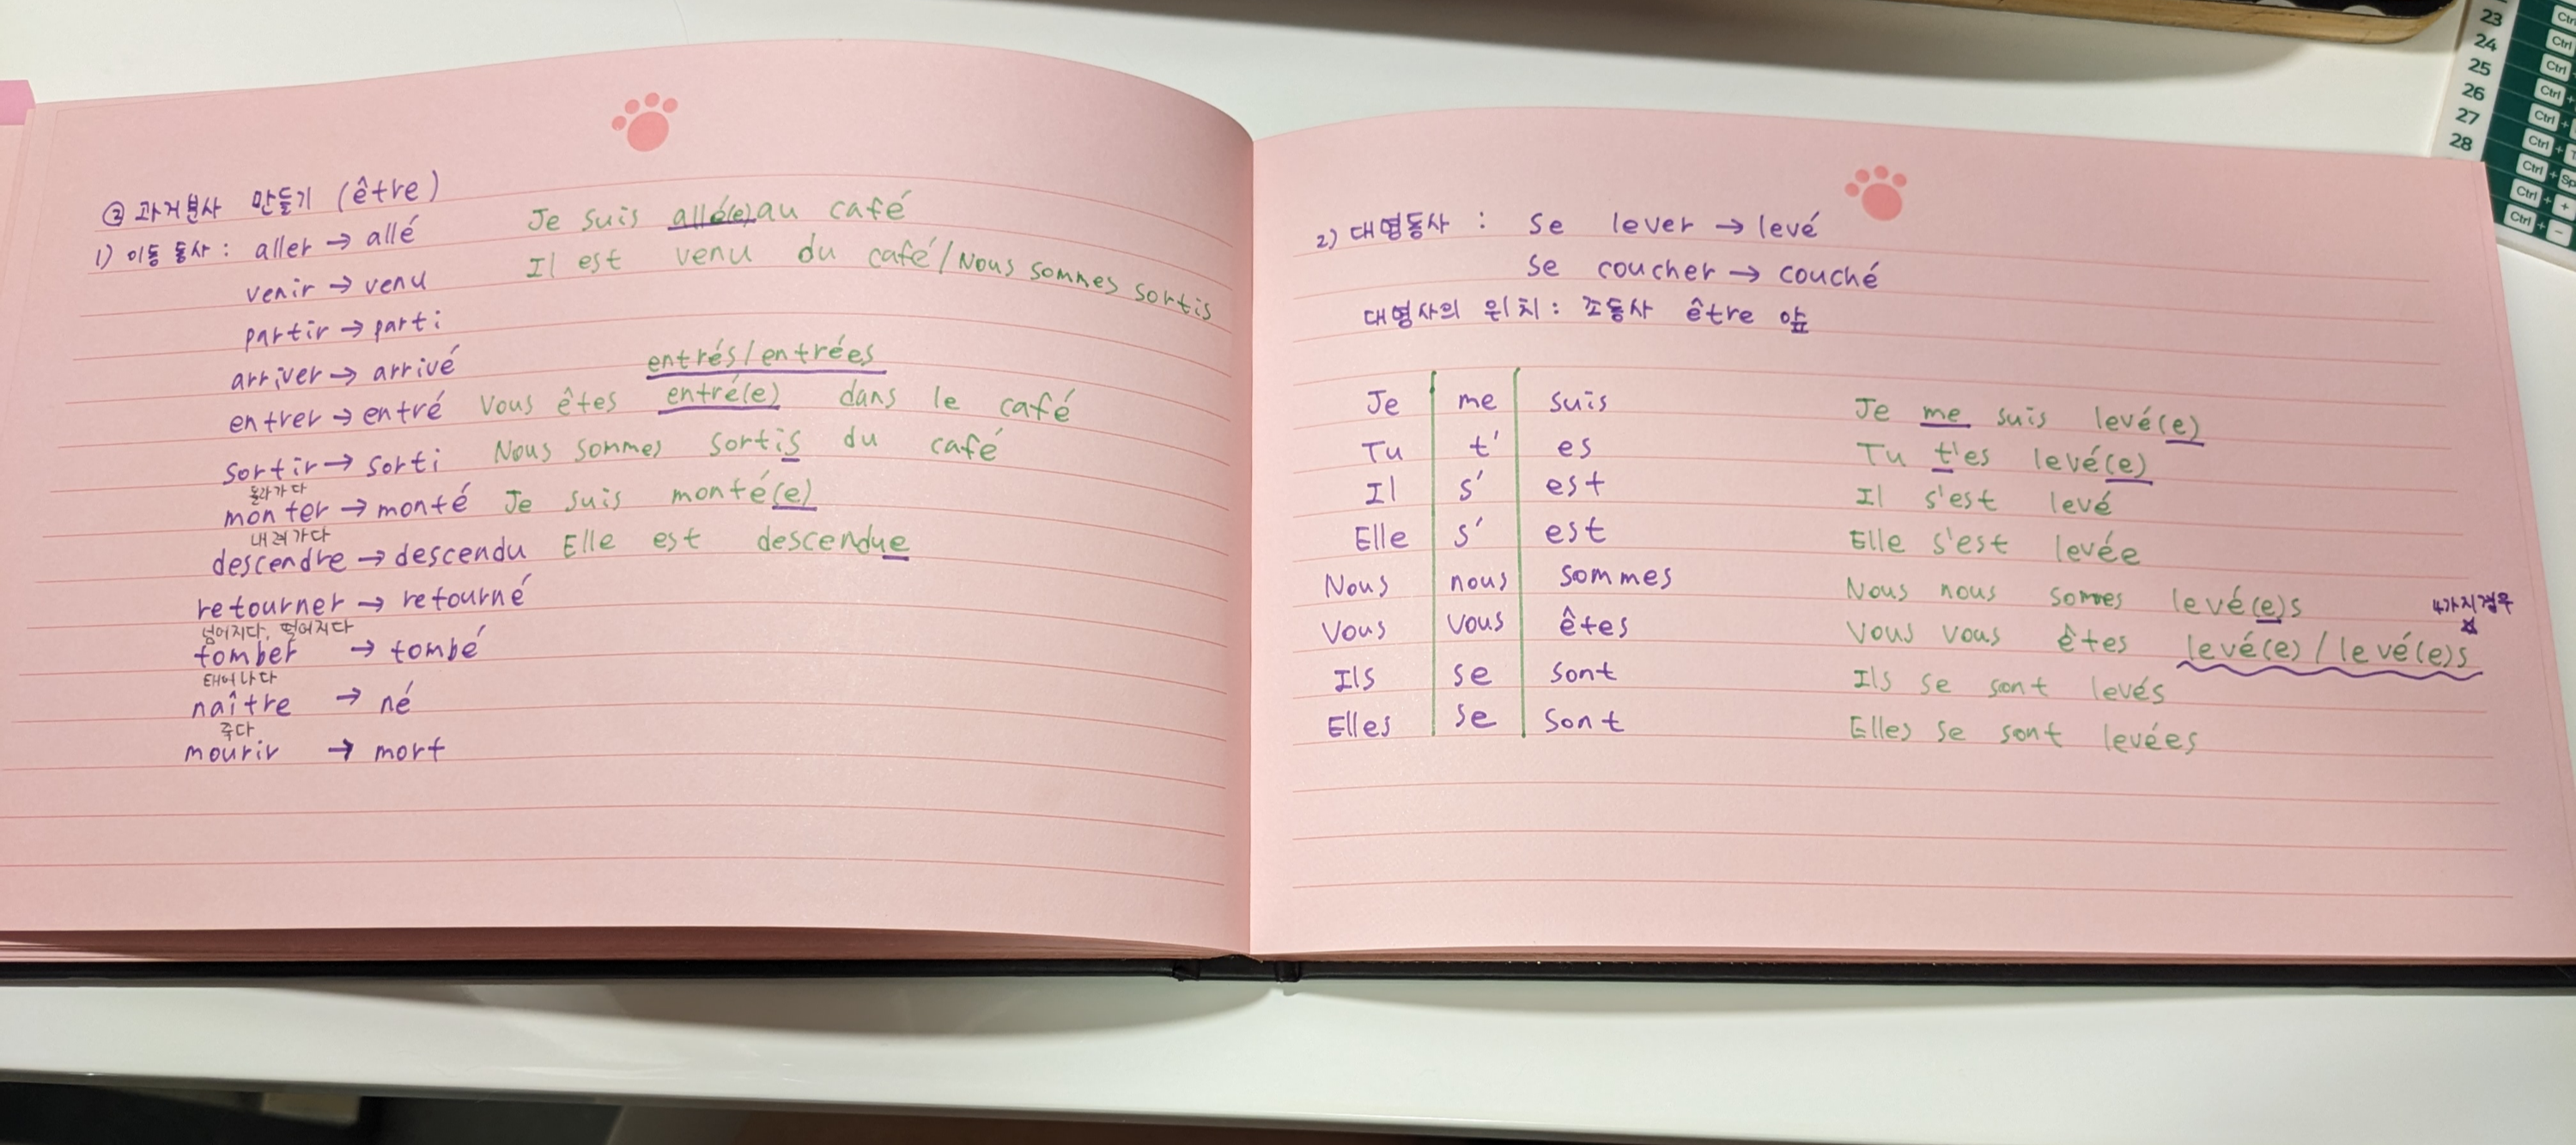 ② 과거분사 만들기 (être)
1) 이동 동사 : aller → allé Je suis allé(e) au café
venir → venu Il est venu du café / Nous sommes sortis
partir → parti
arriver → arrivé entrés/entrées
entrer → entré Vous êtes entré(e) dans le café
sortir → sorti Nous sommes sortis du café
올라가다
monter → monté Je suis monté(e)
내려가다
descendre → descendu Elle est descendue
retourner → retourné
넘어지다, 떨어지다
tomber → tombé
태어나다
naître → né
죽다
mourir → mort
2) 대명동사 : se lever → levé
se coucher → couché
대명사의 위치 : 조동사 être 앞
Je me suis Je me suis levé(e)
Tu t' es Tu t'es levé(e)
Il s' est Il s'est levé
Elle s' est Elle s'est levée
Nous nous sommes Nous nous sommes levé(e)s
4가지 경우
Vous vous êtes Vous vous êtes levé(e) / levé(e)s
Ils se sont Ils se sont levés
Elles se sont Elles se sont levées
23 Ctrl
24 Ctrl
25 Ctrl
26 Ctrl +
27 Ctrl +
28 Ctrl + T
Ctrl + Sp
Ctrl + +
Ctrl + -